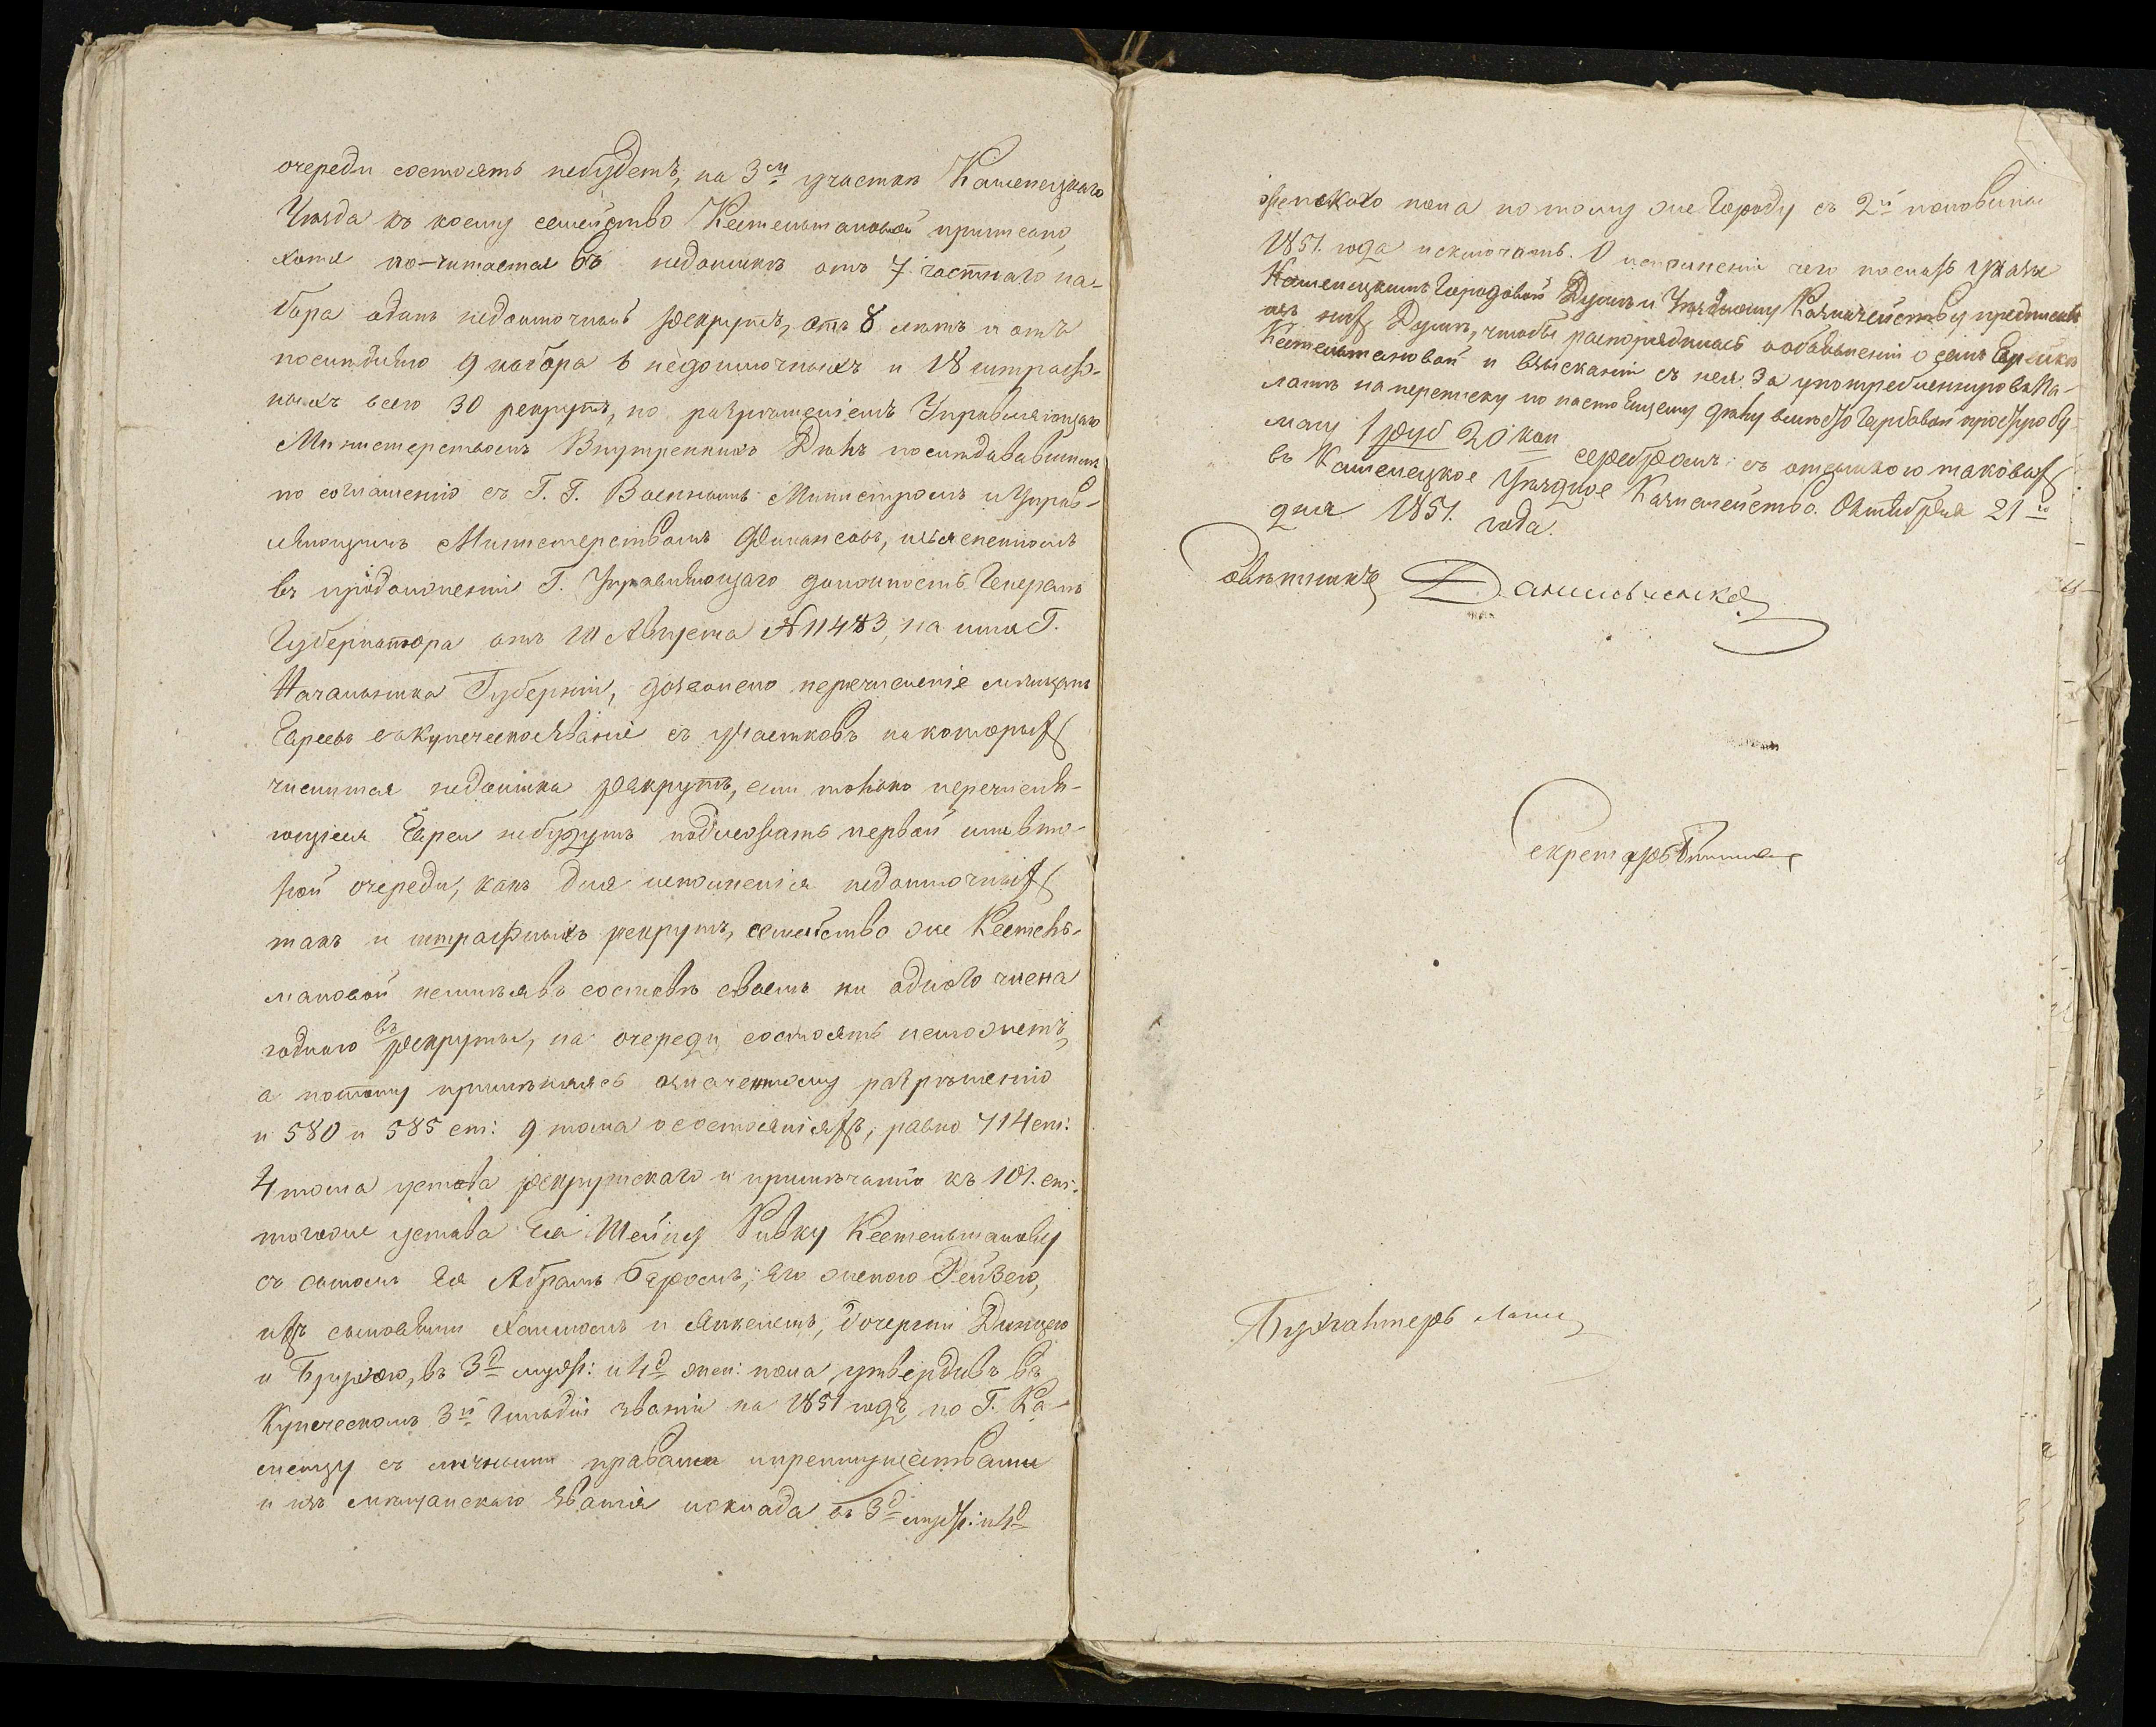 очереди состоять небудетъ, на 3мъ участкѣ Каменецкаго
Уѣзда къ коему семейство Кестельмановой приписано,
хотя по-читается въ недоимкѣ отъ 7 частнаго на-
бора одинъ недоимочный рекрутъ, отъ 8 лѣтъ и отъ
послѣдняго 9 набора недоимочныхъ и 18 штраф-
ныхъ всего 30 рекрутъ, но разрѣшеніемъ Управляющаго
Министерствомъ Внутреннихъ Дѣлъ послѣдовавшимъ
по соглашенію съ Г. Г. Военнымъ Министромъ и Управ-
ляющимъ Министерствомъ Финансовъ, изъясненномъ
въ предложеніи Г. Управляющаго должность Генералъ
Губернатора отъ 10 Августа № 11483, на имя Г.
Начальника Губерніи, дозволено перечисленіе мѣщанъ
Евреевъ въ купеческое званіе съ участковъ на которыхъ
числится недоимка рекрутъ, если только перечисля-
ющіеся Евреи небудутъ подлежать первой или вто-
рой очереди, какъ для исполненія недоимочныхъ
такъ и штрафныхъ рекрутъ, семейство же Кестель-
мановой неимѣя въ составѣ своемъ ни одного члена
годнаго въ рекруты, на очереди состоять неможетъ,
а потому примѣняясь означенному разрѣшенію
и 580 и 585 ст: 9 тома о состояніяхъ, равно 714 ст:
4 тома устава рекрутскаго и примѣчанію къ 101. ст:
тогоже устава Ея Шейну Ривку Кестельманову
съ сыномъ Ея Абрамъ Беромъ, его женою Рейзею,
ихъ сыновьями Хаимомъ и Янкелемъ, дочерьми Динцею
и Брухою, въ 3х муж: и 4х жен: пола, утвердивъ въ
Купеческомъ 3й Гильдіи званіи на 1851 годъ по Г. Ка-
менцу съ личными правами и преимуществами
и изъ мѣщанскаго званія и оклада въ 3х муж: и 4х
женскаго пола по тому же Городу съ 2й половины
1851. года исключить. О исполненіи чего послать указы
Каменецкимъ Городовой Думѣ и Уѣздному Казначейству предписавъ
изъ нихъ Думѣ, чтобы распорядилась объявленіи о семъ Еврейкѣ
Кестельмановой и взысканіи съ нея за употребленную въ Па-
латѣ на переписку по настоящему дѣлу вмѣсто Гербовой простую бу-
магу 1 руб 20 коп серебромъ, съ отсылкою таковыхъ
въ Каменецкое Уѣздное Казначейство. Октября 21го
дня 1851. года.
Совѣтникъ Данильченко
Секретарь
Бухгалтеръ